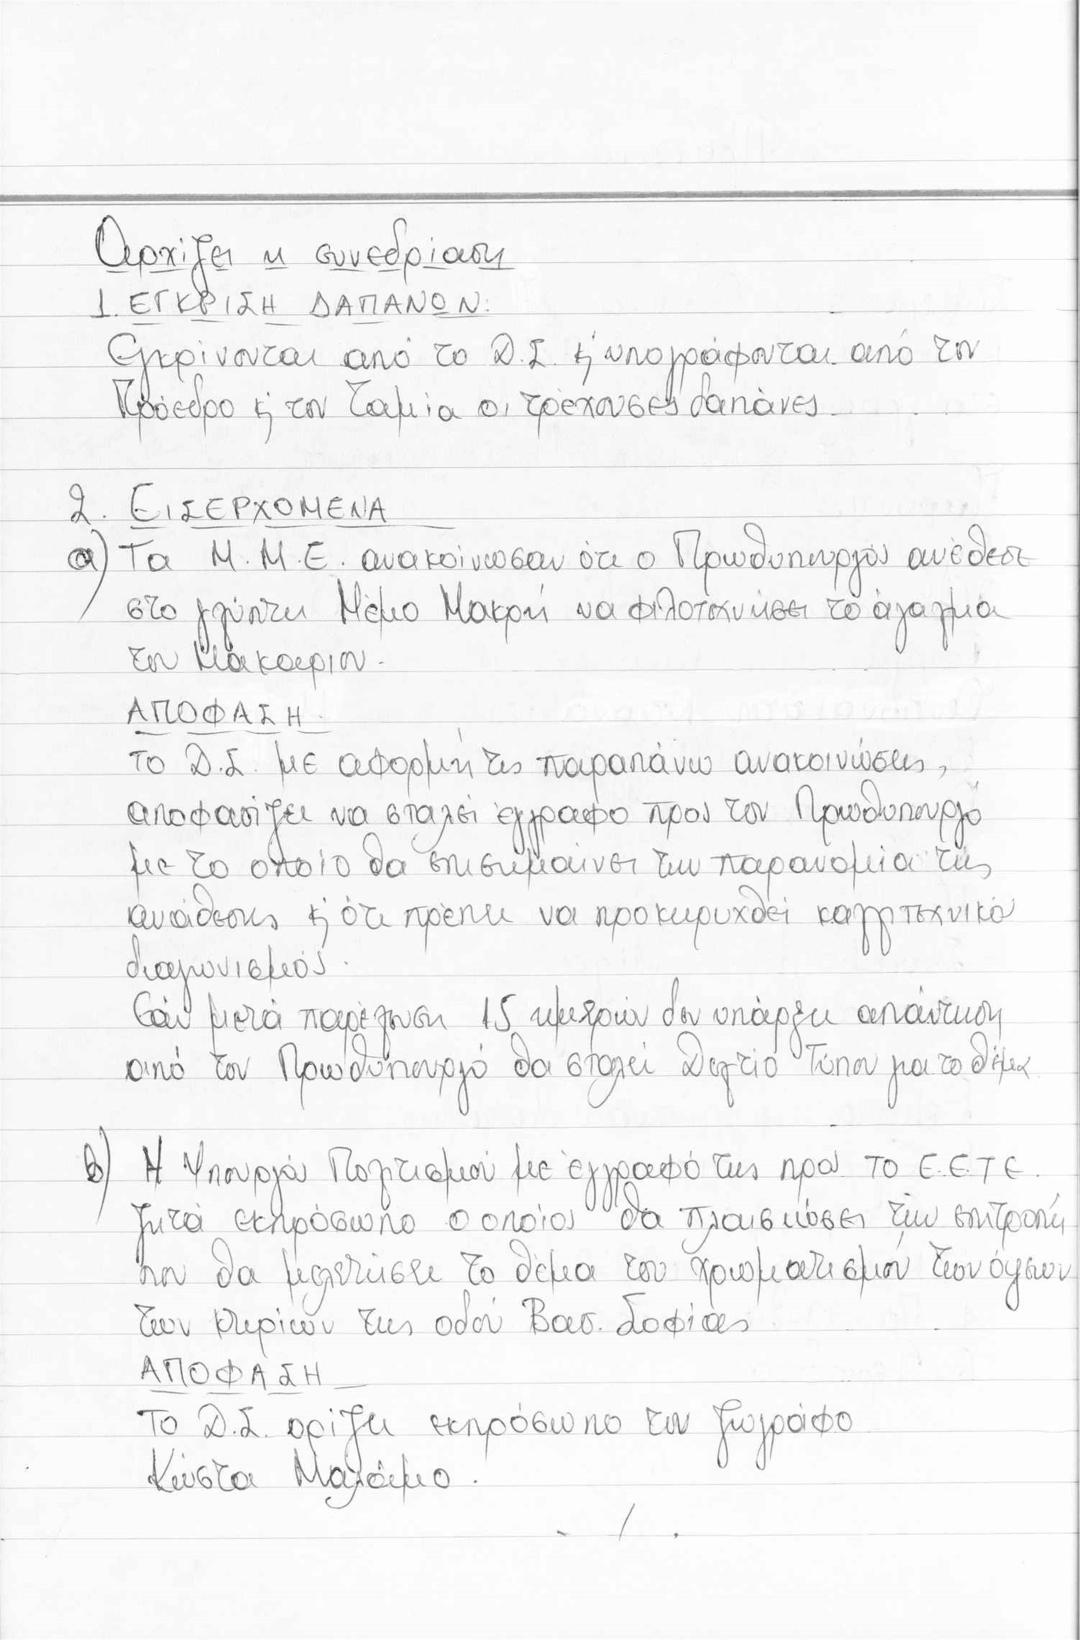 Αρχίζει η συνεδρίαση
1. ΕΓΚΡΙΣΗ ΔΑΠΑΝΩΝ:
Εγκρίνονται από το Δ.Σ. κ' υπογράφονται από τον
Πρόεδρο κ' τον Ταμία οι τρέχουσες δαπάνες.
2. ΕΙΣΕΡΧΟΜΕΝΑ
α) Τα Μ.Μ.Ε. ανακοίνωσαν ότι ο Πρωθυπουργός ανέθεσε
στο γλύπτη Μέμο Μακρή να φιλοτεχνήσει το άγαλμα
του Μακαρίου.
ΑΠΟΦΑΣΗ.
Το Δ.Σ. με αφορμή τις παραπάνω ανακοινώσεις,
αποφασίζει να σταλεί έγγραφο προς τον Πρωθυπουργό
με το οποίο θα επισημαίνει την παρανομία της
ανάθεσης κ' ότι πρέπει να προκηρυχθεί καλλιτεχνικός
διαγωνισμός.
Εάν μετά παρέλευση 15 ημερών δεν υπάρξει απάντηση
από τον Πρωθυπουργό θα σταλεί Δελτίο Τύπου για το θέμα
β) Η Υπουργός Πολιτισμού με έγγραφό της προς το Ε.Ε.Τ.Ε.
ζητά εκπρόσωπο ο οποίος θα πλαισιώσει την επιτροπή
που θα μελετήσει το θέμα του χρωματισμού των όψεων
των κτιρίων της οδού Βασ. Σοφίας
ΑΠΟΦΑΣΗ
Το Δ.Σ. ορίζει εκπρόσωπο τον ζωγράφο
Κώστα Μαλάμο.
. / .